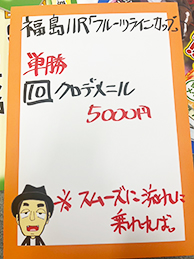 福島11R「フルーツラインカップ。
単勝
⑩クロデメニール
5000円
※スムーズに流れに
乗れれば。